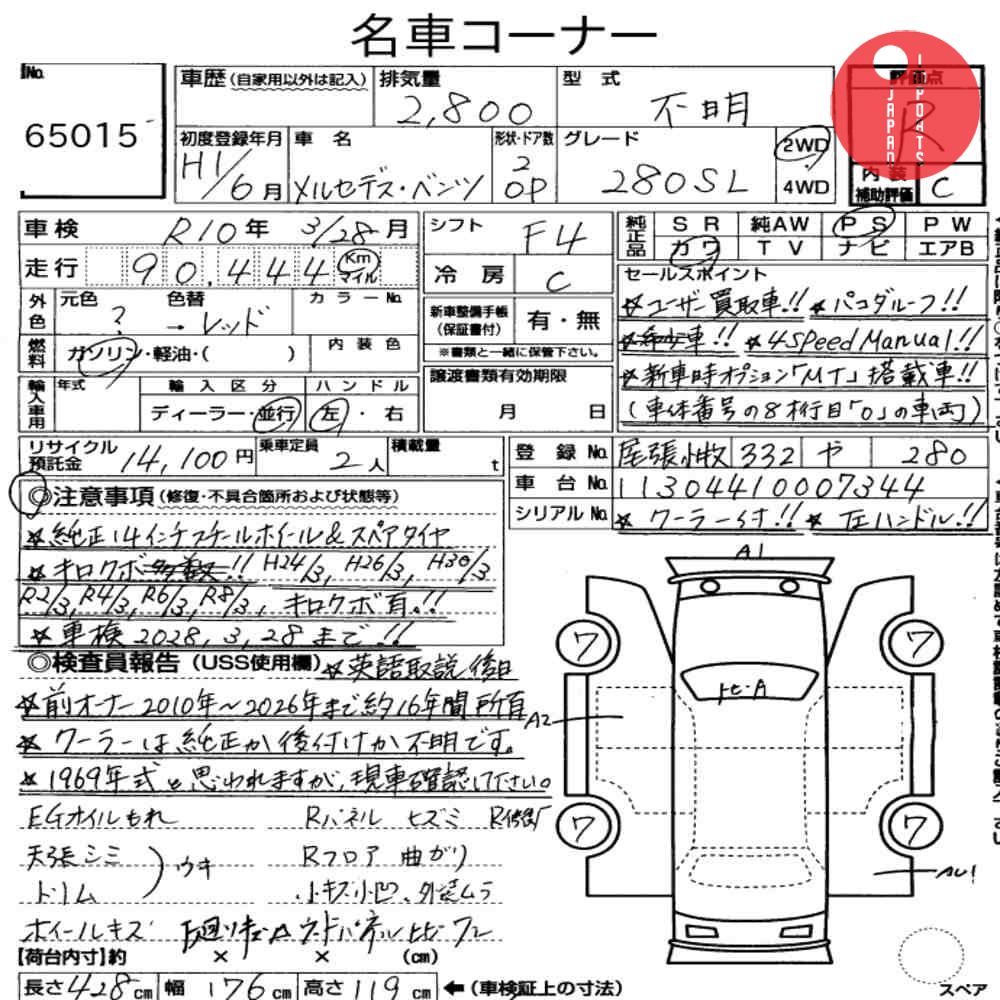 名車コーナー
No. 65015
車歴(自家用以外は記入) 排気量 2,800 型式 不明 評価点 R
JAPAN IMPORTS
初度登録年月 H1/6月 車名 メルセデス・ベンツ 形状・ドア数 2 OP グレード 280SL 2WD 4WD 内装補助評価 C
車検 R10年 3/28月 シフト F4 純正品 SR 純AW PS PW
走行 90,444 Km マイル 冷房 C カワ TV ナビ エアB
外色 元色 ? 色替 → レッド カラーNo. 新車整備手帳(保証書付) 有・無
※書類と一緒に保管下さい。
燃料 ガソリン・軽油・( ) 内装色
セールスポイント
☆ユーザー買取車!! ☆パゴダルーフ!!
☆希少車!! ☆4Speed Manual!!
☆新車時オプション「MT」搭載車!!
(車体番号の8桁目「0」の車両)
輸入車用 年式 輸入区分 ディーラー・並行 ハンドル 左・右
譲渡書類有効期限 月 日
リサイクル預託金 14,100円 乗車定員 2人 積載量 t
登録No. 尾張小牧 332 や 280
車台No. 11304410007344
シリアルNo. ☆クーラー付!! ☆左ハンドル!!
◎注意事項(修復・不具合箇所および状態等)
☆純正14インチスチールホイール&スペアタイヤ
☆キロクボ多数!! H24/3, H26/3, H30/3
R2/3, R4/3, R6/3, R8/3, キロクボ有!!
☆車検2028,3,28まで!!
◎検査員報告(USS使用欄) ☆英語取説後日
☆前オーナー2010年~2026年まで約16年間所有
☆クーラーは純正か後付けか不明です。
☆1969年式と思われますが、現車確認して下さい。
EGオイルもれ Rパネル ヒズミ R修復
天張シミ Rフロア 曲がり
トリム ウキ 小キズ小凹、外装ムラ
ホイールキズ
【荷台内寸】約 × × (cm)
長さ428cm 幅176cm 高さ119cm ←(車検証上の寸法)
A1
7 7
A2
7 7
AU1
スペア